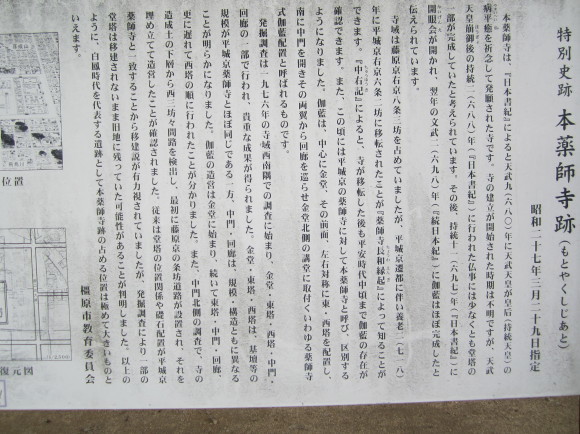 特別史跡 本薬師寺跡(もとやくしじあと)
昭和二十七年三月二十九日指定
本薬師寺は、『日本書紀』によると天武九(六八〇)年に天武天皇が皇后(持統天皇)の
病平癒を祈念して発願された寺です。寺の建立が開始された時期は不明ですが、天武
天皇崩御後の持統二(六八八)年(『日本書紀』)に行われた仏事には少なくとも堂塔の
一部が完成していたと考えられています。その後、持統十一(六九七)年(『日本書紀』)に
開眼会が開かれ、翌年の文武二(六九八)年(『続日本紀』)に伽藍はほぼ完成したと
伝えられています。
寺域は藤原京右京八条三坊を占めていましたが、平城京遷都に伴い養老二(七一八)
年に平城京右京六条二坊に移転されたことが『薬師寺長和縁起』によって知ることが
できます。『中右記』によると、寺が移転した後も平安時代中頃まで伽藍の存在が
確認できます。また、この頃には平城京の薬師寺に対して本薬師寺と呼び、区別する
ようになりました。伽藍は、中心に金堂、その前面、左右対称に東・西塔を配置し、
南に中門を開きその両翼から回廊を巡らせ金堂北側の講堂に取付くいわゆる薬師寺
式伽藍配置と呼ばれるものです。
発掘調査は一九七六年の寺域西南隅での調査に始まり、金堂・東塔・西塔・中門・
回廊の一部で行われ、貴重な成果が得られました。金堂・東塔・西塔は、基壇等の
規模が平城京薬師寺とほぼ同じである一方、中門・回廊は、規模・構造ともに異なる
ことが明らかになりました。伽藍の造営は金堂に始まり、続いて東塔・中門・回廊、
更に遅れて西塔の順に行われたことが分かりました。また、中門北側の調査で、寺の
造成土の下層から西三坊々間路を検出し、最初に藤原京の条坊道路が設置され、それを
埋め立てて造営したことが確認されました。従来は堂塔の位置関係や礎石配置が平城京
薬師寺と一致することから移建説が有力視されていましたが、発掘調査により一部の
堂塔は移建されないまま旧地に残っていた可能性があることが判明しました。以上の
ように、白鳳時代を代表する遺跡として本薬師寺跡の占める位置は極めて大きいものと
いえます。
橿原市教育委員会
位置
復元図